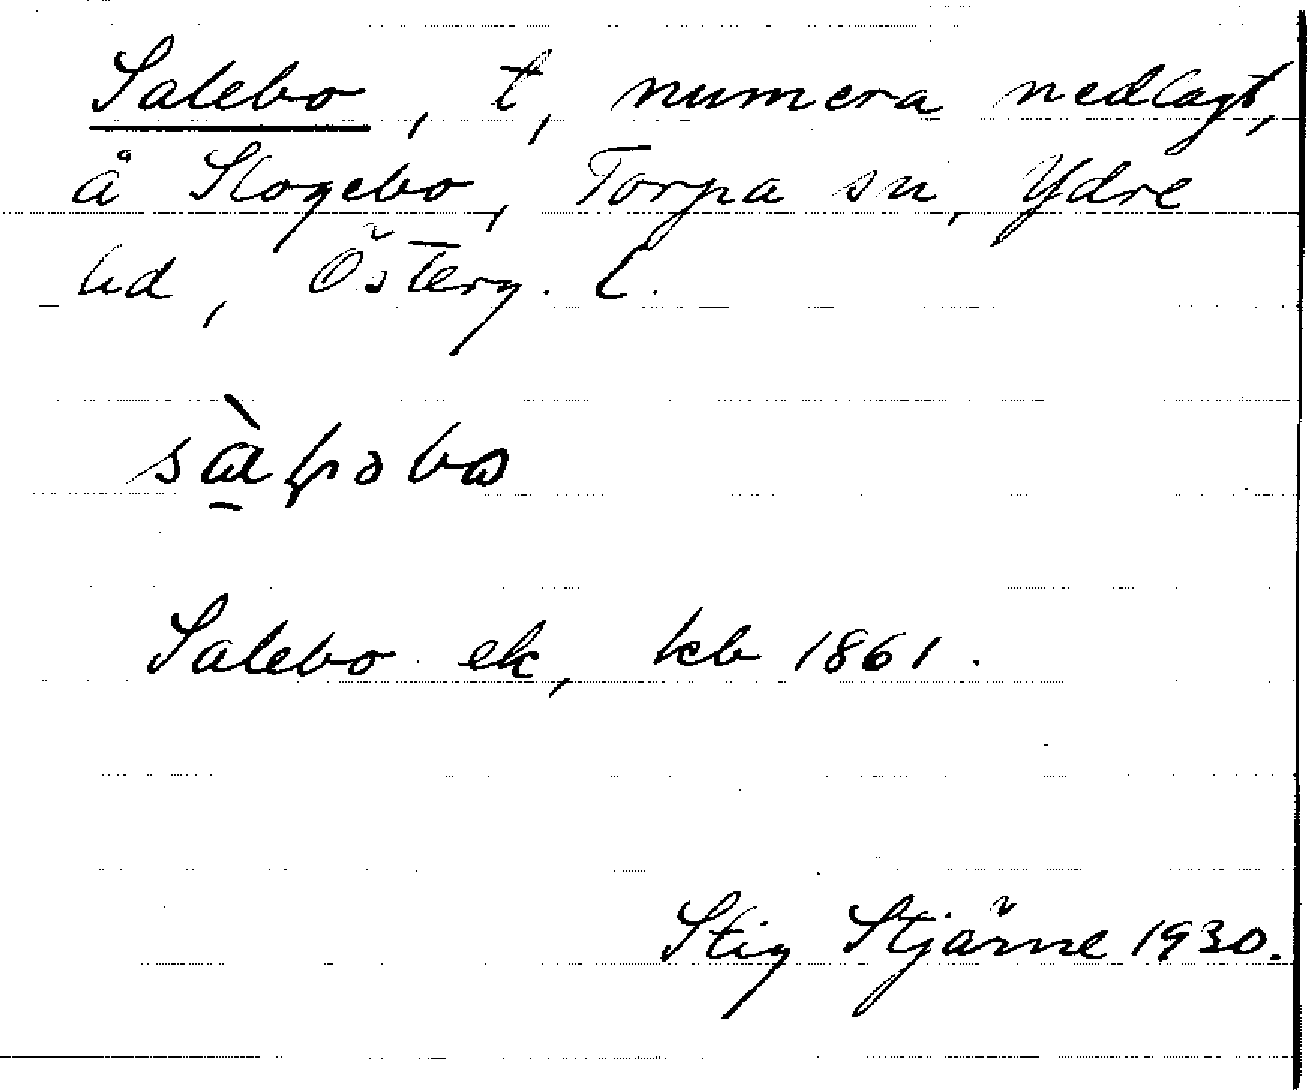 Salebo, t, numera nedlagt,
å Skogebo, Torpa sn, Ydre
hd, Österg. l.
Salebo ek, kb 1861.
Stig Stjärne 1930.